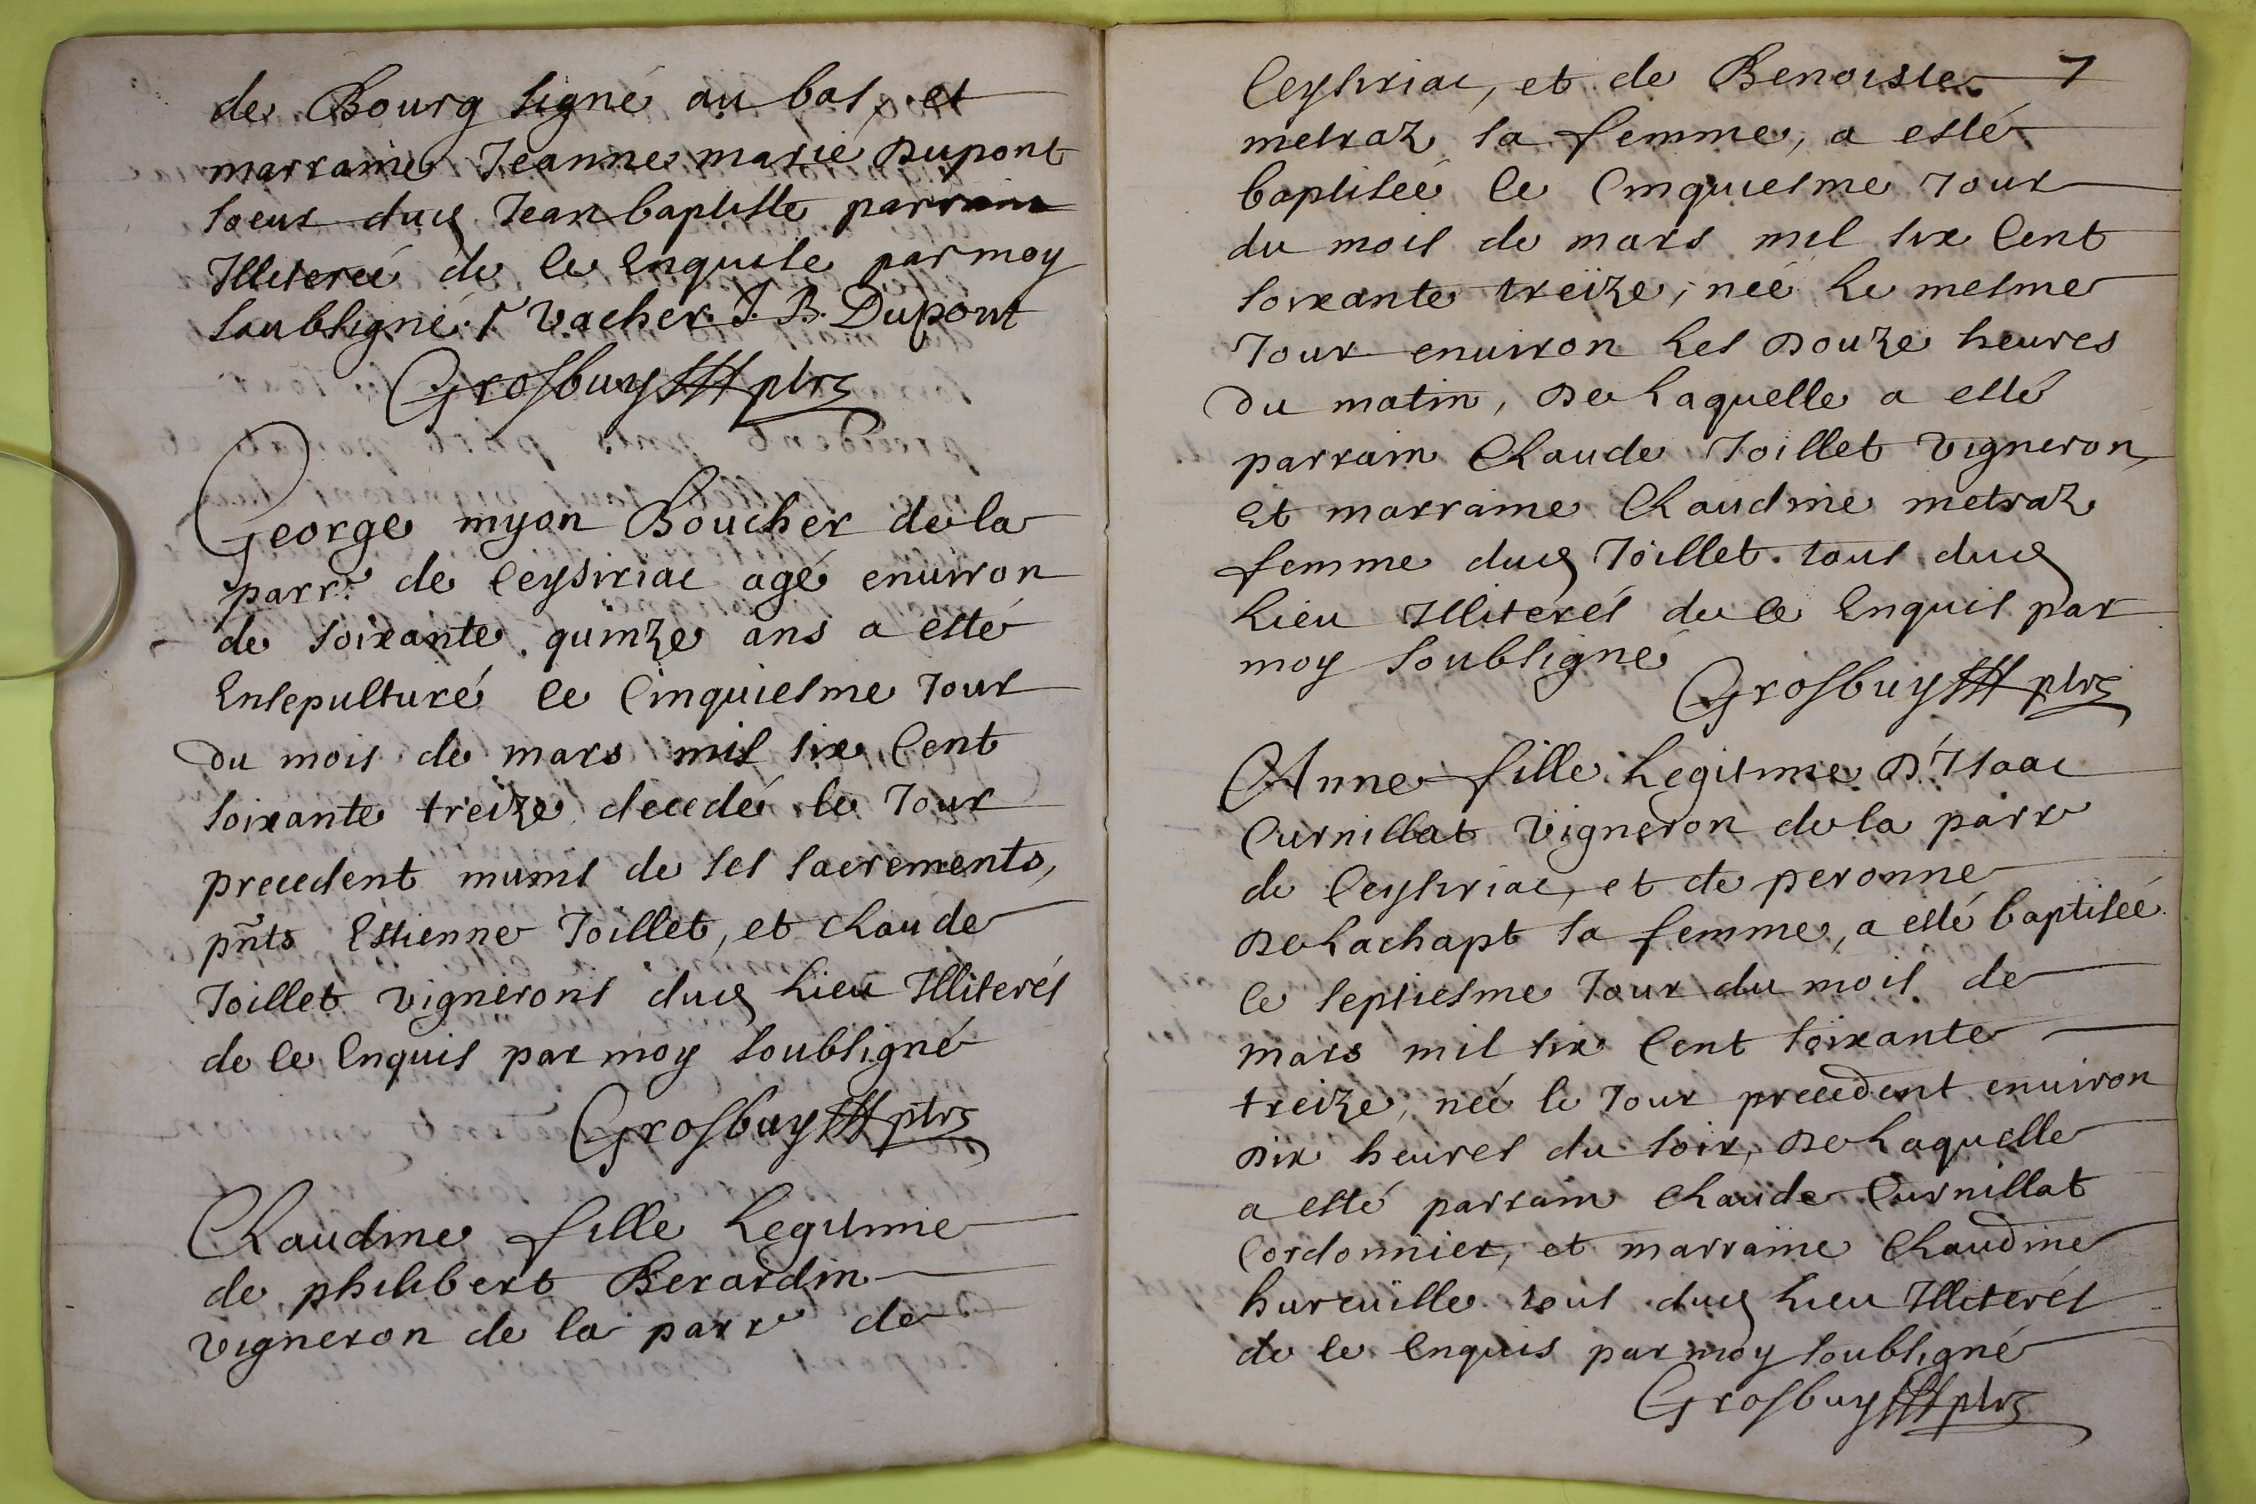 de Bourg signé au bas, et
marraine Jeanne marie Dupont
soeur dud Jean baptiste parrain
Illiteree de ce enquise par moy
soubsigné. Vacher. J. B. Dupont
Grosbuy ptre
George myon Boucher de la
parr.e de Ceysiriac agé enuiron
de soixante quinze ans a esté
ensepulturé le Cinquiesme Jour
du mois de mars mil six Cent
soixante treize decedé le Jour
precedent muni de ses sacrements,
pnts Estienne Joillet, et claude
Joillet vignerons dud lieu Illiterés
de ce enquis par moy soubsigné
Grosbuy ptre
Claudine fille legitime
de philibert Berardin
vigneron de la parre de
Ceysiriac, et de Benoiste 7
metraz sa femme, a esté
baptiseé le Cinquiesme Jour
du mois de mars mil six Cent
soixante treize, neé le mesme
Jour enuiron les douze heures
du matin, de laquelle a esté
parrain Claude Joillet vigneron,
et marraine Claudine metraz
femme dud Joillet. tous dud
lieu Illiterés de ce enquis par
moy soubsigné
Grosbuy ptre
Anne fille legitime d'Isaac
Curnillat vigneron de la parre
de Ceysiriac, et de peronne
Delachapt sa femme, a esté baptiseé
le septiesme Jour du mois de
mars mil six Cent soixante
treize, neé le Jour precedent enuiron
dix heures du soir, de laquelle
a esté parrain Claude Curnillat
Cordonnier, et marraine Claudine
hureüille tous dud lieu Illiterés
de ce enquis par moy soubsigné
Grosbuy ptre